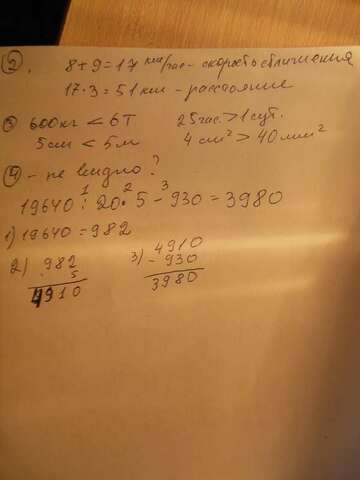 2. 8+9=17 км/час - скорость сближения
17·3=51 км - расстояние
3 600кг < 6Т 25час. > 1 сут.
5см < 5м 4 см² > 40 мм²
4 - не видно?
1 2 3
19640 : 20 · 5 - 930 = 3980
1) 19640 = 982
2) 982 3) 4910
5 - 930
4910 3980